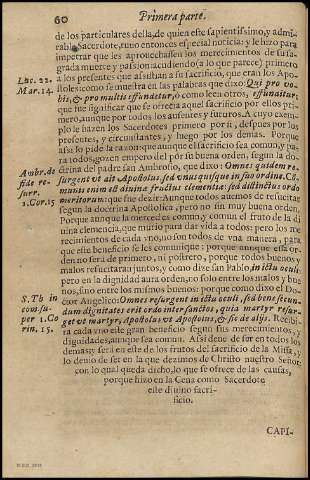 60
Primera parte.
de los particulares della, de quien este sapientissimo, y admi-
rable Sacerdote, tuuo entonces especial noticia: y le hizo para
impetrar que les aprouechassen los merecimientos de su sa-
grada muerte y passion acudiendo (a lo que parece) primero
Luc. 22.
a los presentes que assistian a su sacrificio, que eran los Apo-
Mar. 14.
stoles: como se muestra en las palabras que dixo: Qui pro vo-
bis, & pro multis effundetur, ò como leen otros, effunditur:
que fue significar que se ofrecia aquel sacrificio por ellos pri-
mero, aunque por todos los ausentes y futuros. A cuyo exem-
plo le hazen los Sacerdotes primero por si, despues por los
presentes, y circunstantes, y luego por los demas. Porque
assi lo pide la razon: que aunque el sacrificio sea comun, y pa-
ra todos, gozen empero del por su buena orden, segun la do-
Ambr. de
ctrina del padre san Ambrosio, que dixo: Omnes quidem re-
fide re-
surgent vt ait Apostolus, sed vnusquisque in suo ordine. Cõ-
surr.
munis enim est diuinæ fructus clementiæ: sed distinctus ordo
1. Cor. 15
meritorum: que fue dezir: Aunque todos auemos de resucitar
segun la doctrina Apostolica, pero no sin muy buena orden.
Porque aunque la merced es comun, y comun el fruto de la di-
uina clemencia, que murio para dar vida a todos: pero los me
recimientos de cada vno, no son todos de vna manera, para
que este beneficio se les comunique: porque aunque esta or-
den no será de primero, ni postrero, porque todos buenos y
malos resucitaran juntos, y como dize san Pablo, in ictu oculi,
pero en la dignidad aura orden, no solo entre los malos y bue
nos, sino entre los mismos buenos: porque como dixo el Do-
S. Th. in
ctor Angelico: Omnes resurgent in ictu oculi, sed bene secun-
com. su-
dum dignitates erit ordo inter sanctos, quia martyr resur-
per 1. Co
get vt martyr, Apostolus vt Apostolus, & sic de alijs. Recibi-
rin. 15.
ra cada vno este gran beneficio segun sus merecimientos, y
dignidades, aunque sea comun. Assi deue de ser en todos los
demas: y será en este de los frutos del sacrificio de la Missa, y
lo deuio de ser en la que dezimos de Christo nuestro Señor:
con lo qual queda dicho, lo que se ofrece de las causas,
porque hizo en la Cena como Sacerdote
este diuino sacri-
ficio.
CAPI-